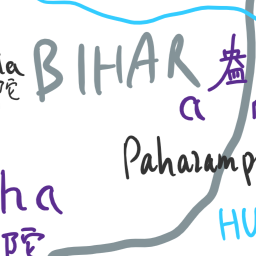 ia
陀
BIHAR
盎
a
Paharamp
ha
陀
HU